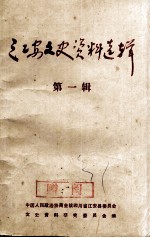 江安文史资料选辑
第一辑
中国人民政治协商会议四川省江安县委员会
文史资料研究委员会编